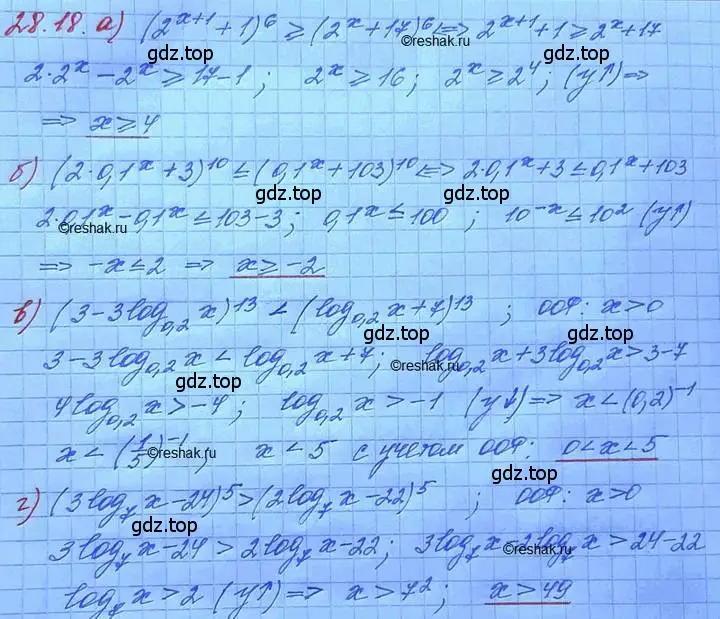 28.18. а) (2^{x+1}+1)^6 ≥ (2^x+17)^6 ⟺ 2^{x+1}+1 ≥ 2^x+17
©reshak.ru
2·2^x − 2^x ≥ 17−1; 2^x ≥ 16; 2^x ≥ 2^4; (y↑) ⇒
gdz.top
⇒ x ≥ 4
б) (2·0,1^x+3)^{10} ≤ (0,1^x+103)^{10} ⟺ 2·0,1^x+3 ≤ 0,1^x+103
gdz.top
2·0,1^x − 0,1^x ≤ 103−3; 0,1^x ≤ 100; 10^{-x} ≤ 10^2 (y↑)
©reshak.ru
gdz.top
⇒ −x ≤ 2 ⇒ x ≥ −2
в) (3−3log_{0,2} x)^{13} < (log_{0,2} x+7)^{13}; ООФ: x>0
gdz.top
3−3log_{0,2} x < log_{0,2} x+7; log_{0,2} x+3log_{0,2} x > 3−7
©reshak.ru
gdz.top
4log_{0,2} x > −4; log_{0,2} x > −1 (y↓) ⇒ x < (0,2)^{-1}
x < (1/5)^{-1}; x < 5 с учетом ООФ: 0<x<5
©reshak.ru
gdz.top
г) (3log_7 x−24)^5 > (2log_7 x−22)^5; ООФ: x>0
gdz.top
3log_7 x−24 > 2log_7 x−22; 3log_7 x−2log_7 x > 24−22
©reshak.ru
log_7 x > 2 (y↑) ⇒ x > 7^2; x > 49
gdz.top